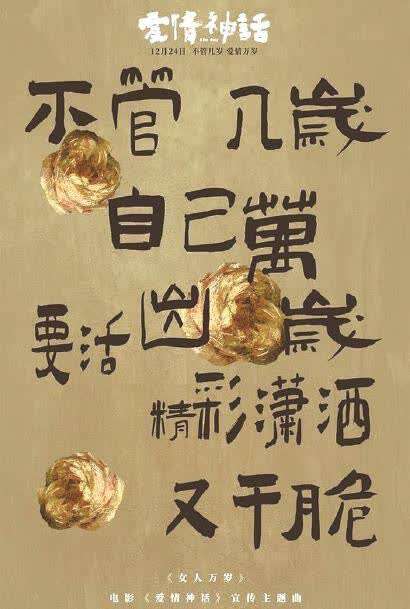 爱情神話
12月24日 不管几岁 爱情万岁
不管 几歲
自己萬
歲
要活出
精彩潇洒
又干脆
《女人万岁》
电影《爱情神话》宣传主题曲